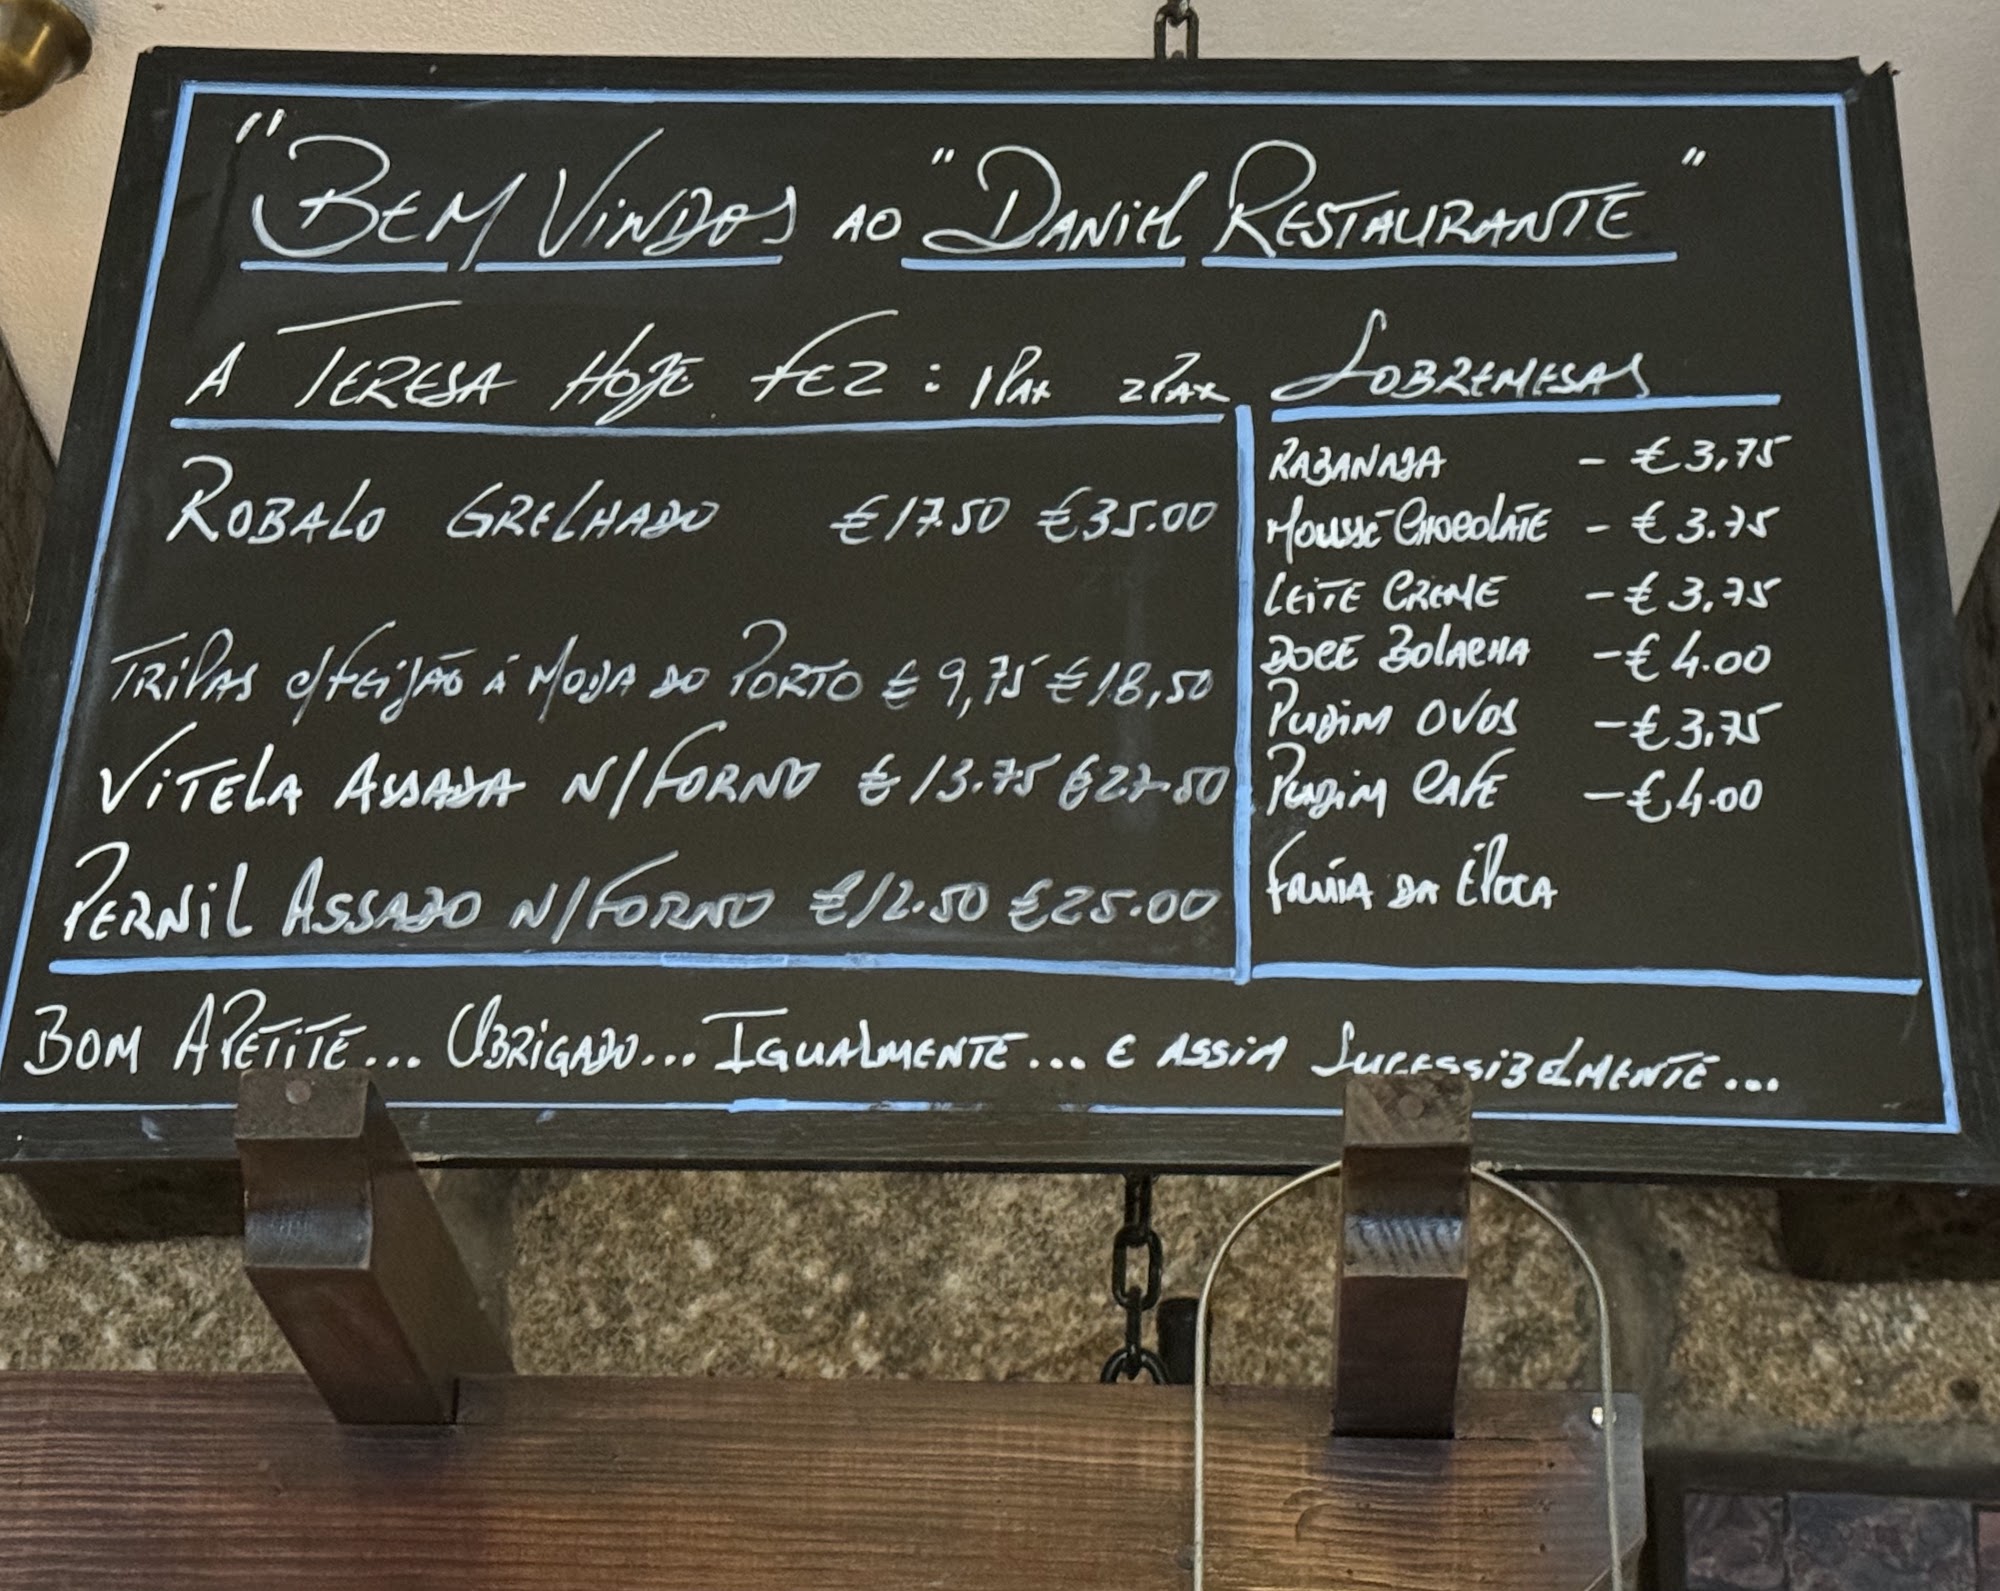 "BEM VINDOS AO "DANIEL RESTAURANTE"
A TERESA HOJE FEZ: 1PAX 2PAX
ROBALO GRELHADO €17.50 €35.00
TRIPAS C/FEIJÃO Á MODA DO PORTO €9,75 €18,50
VITELA ASSADA N/FORNO €13.75 €27.50
PERNIL ASSADO N/FORNO €12.50 €25.00
SOBREMESAS
RABANADA - €3,75
MOUSSE CHOCOLATE - €3.75
LEITE CREME - €3,75
DOCE BOLACHA - €4.00
PUDIM OVOS - €3,75
PUDIM CAFE - €4.00
FRUTA DA ÉPOCA
BOM APETITE... OBRIGADO... IGUALMENTE... E ASSIM SUCESSIBELMENTE...